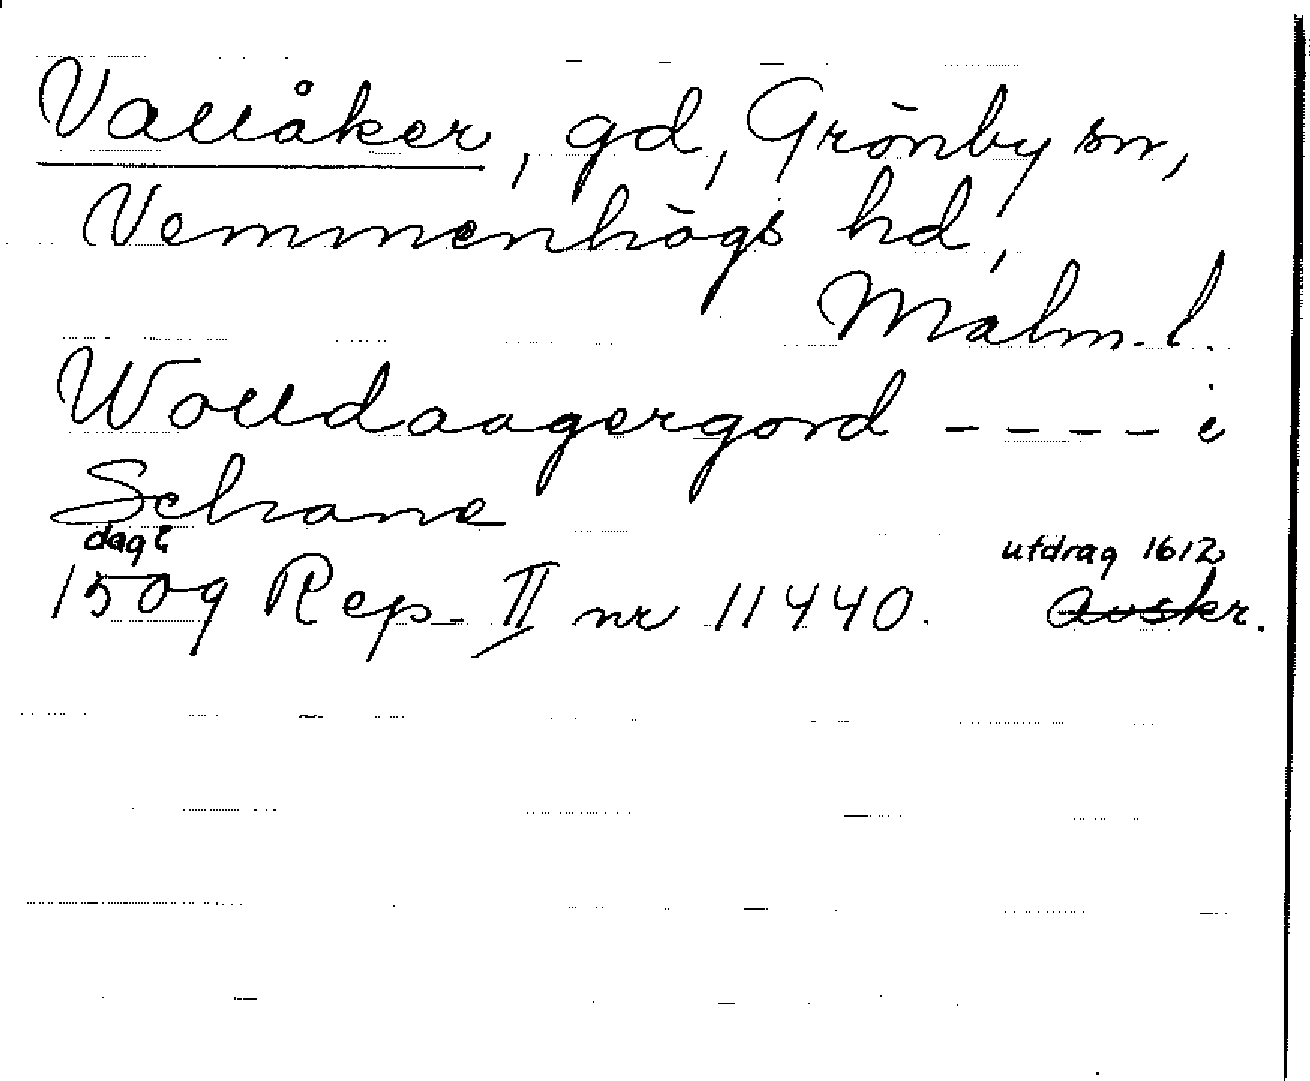 Vallåker, gd, Grönby sn,
Vemmenhögs hd,
Malm. l.
Wolldaagergord - - - - i
Schane
dag? utdrag 1612
1509 Rep. II nr 11440. Avskr.